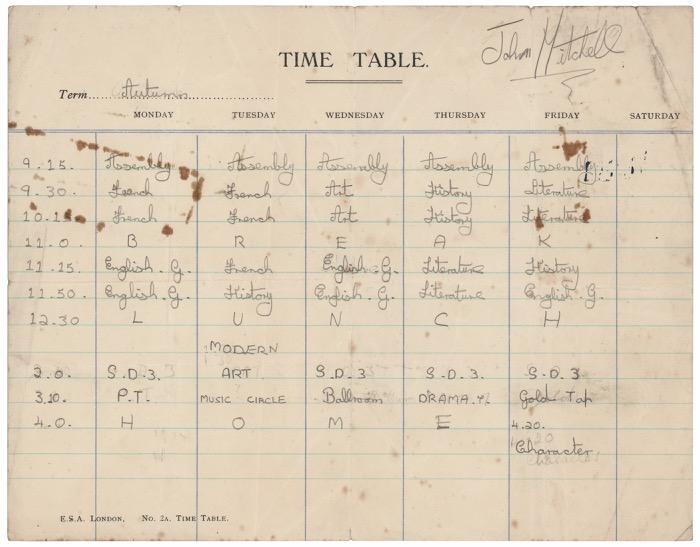 John Mitchell
TIME TABLE.
Term Autumn
MONDAY TUESDAY WEDNESDAY THURSDAY FRIDAY SATURDAY
9.15. Assembly Assembly Assembly Assembly Assembly
9.30. French French Art History Literature
10.15 French French Art History Literature
11.0 B R E A K
11.15. English. G. French English. G. Literature History
11.50 English. G. History English. G. Literature English. G.
12.30 L U N C H
MODERN
2.0. S.D.3. ART. S.D.3 S.D.3. S.D.3
3.10. P.T. MUSIC CIRCLE Ballroom DRAMA. Gold Tap
4.0. H O M E 4.20.
Character
E.S.A. LONDON, No. 2A. TIME TABLE.